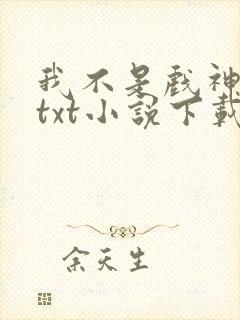 我不是戏神
txt小说下载
余天生